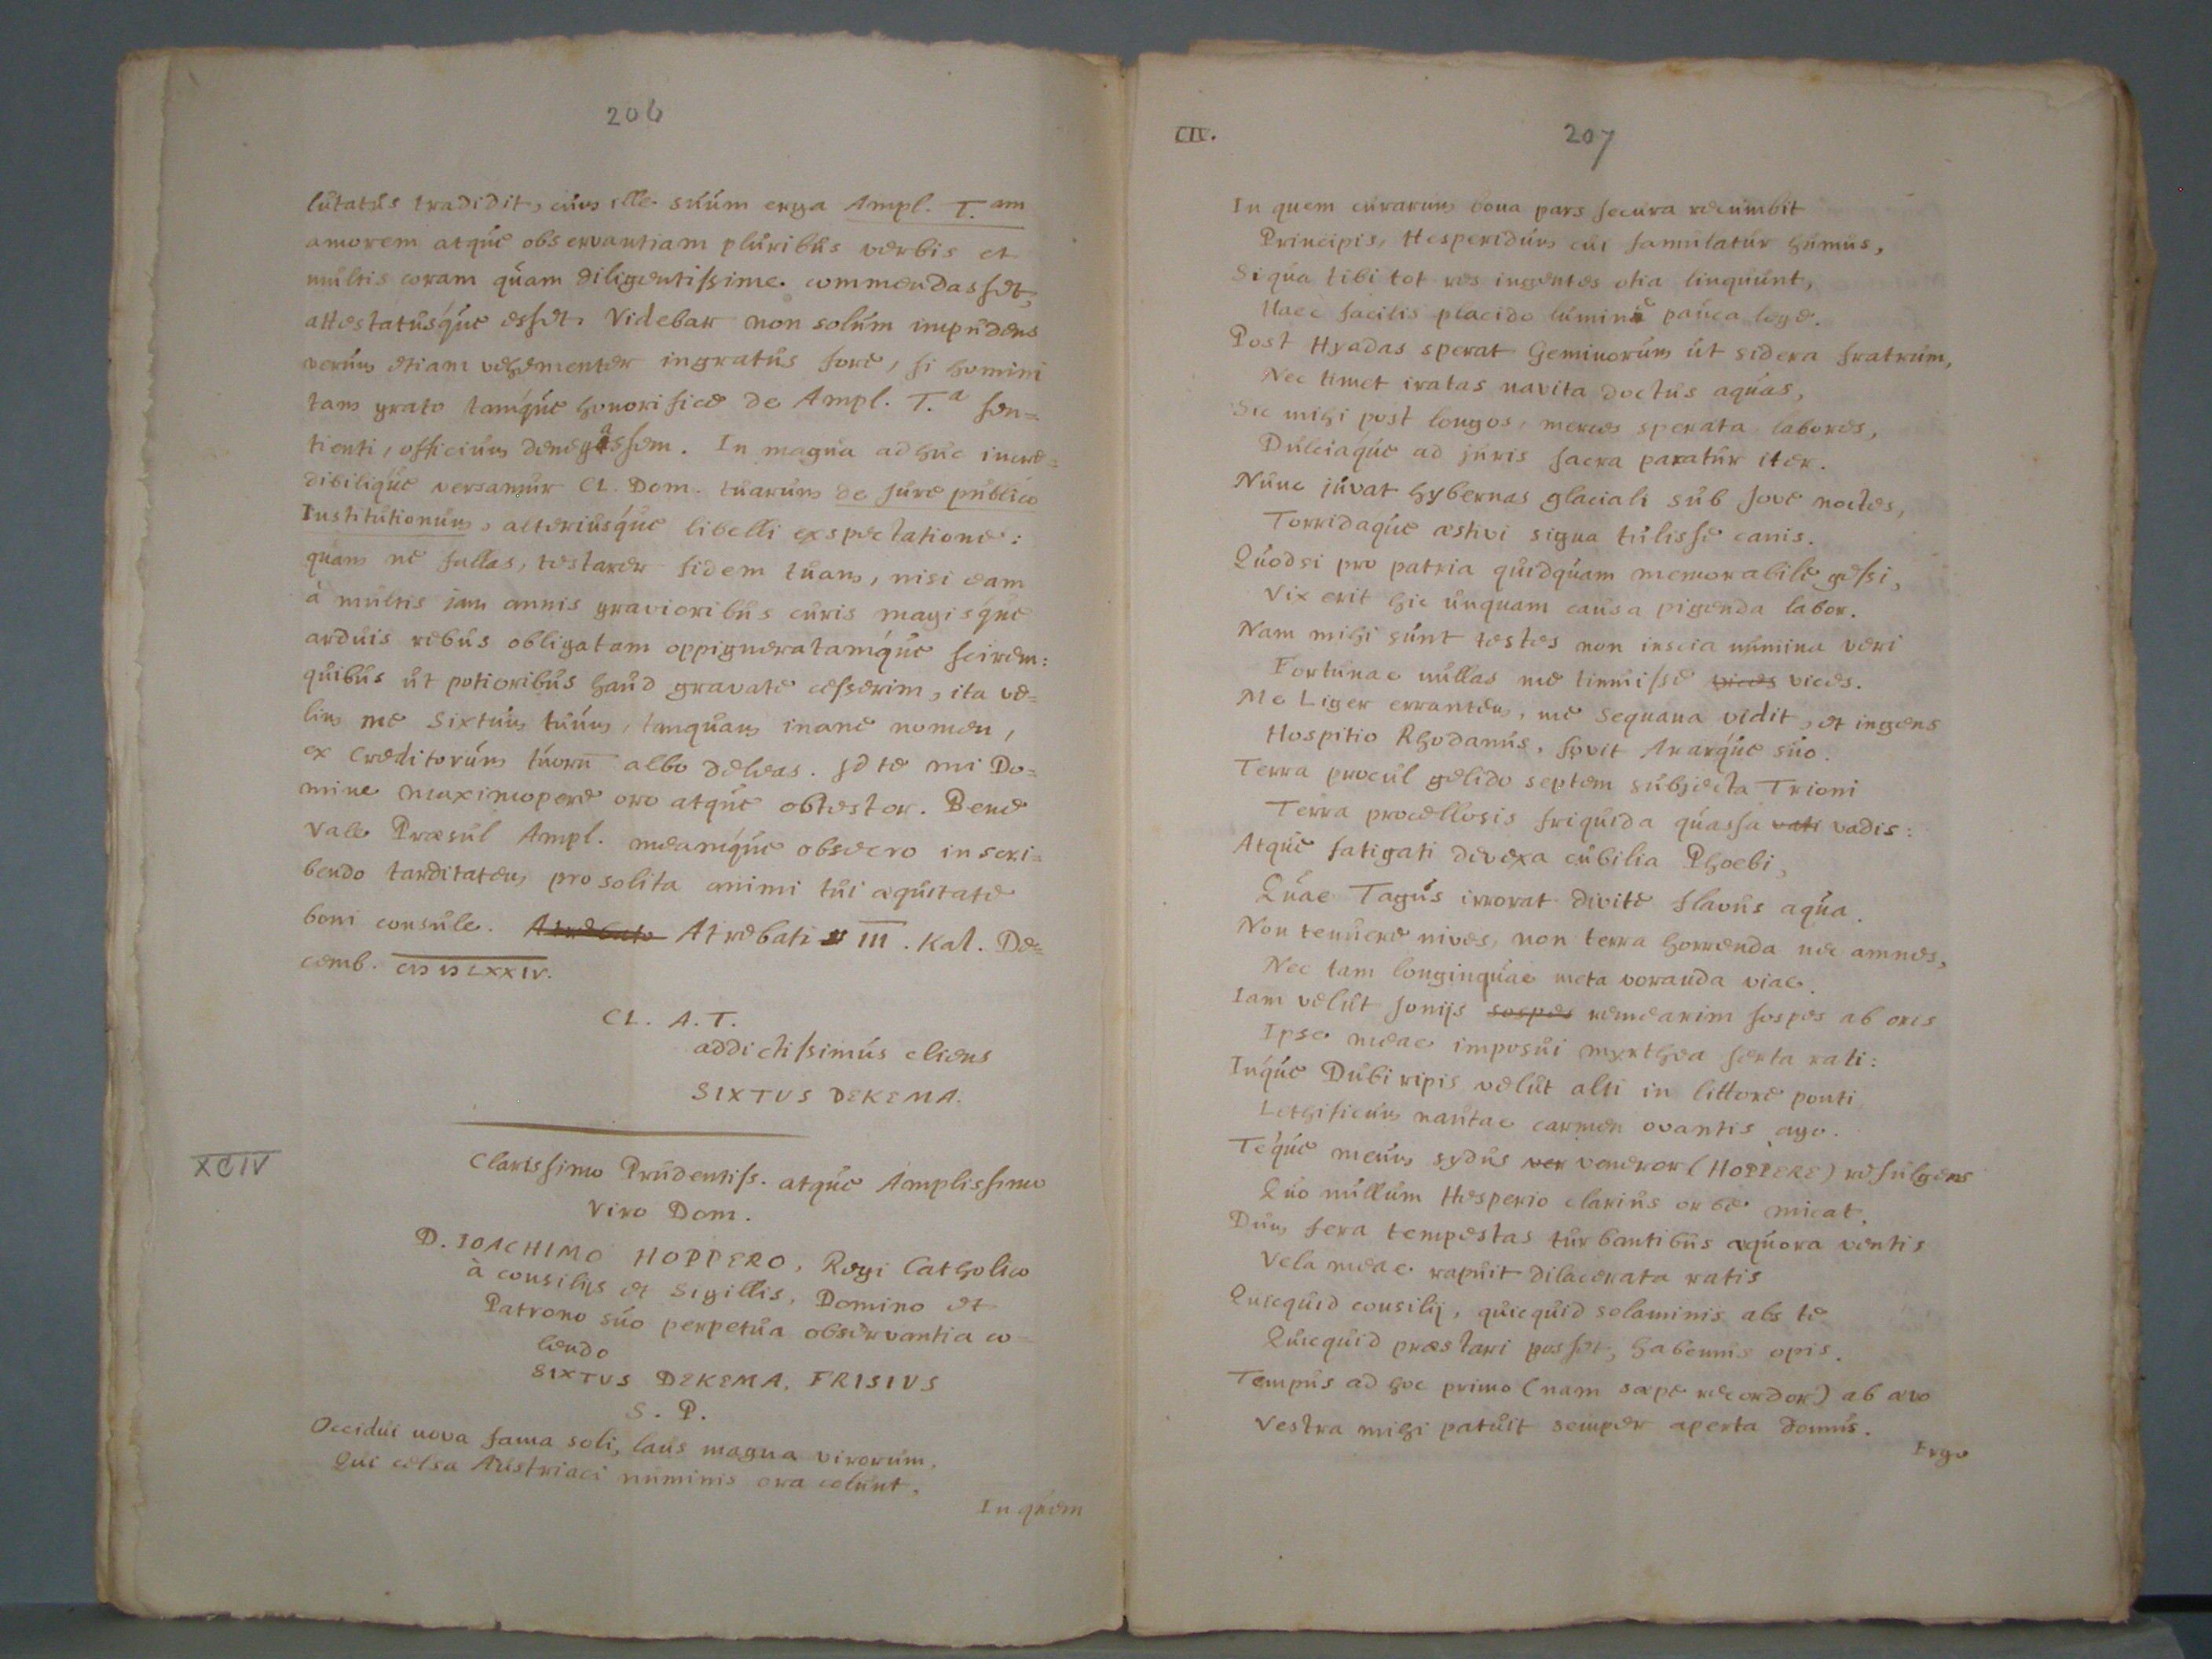 206
lutatus tradidit, cùm ille suum erga Ampl. T.am
amorem atque observantiam pluribus verbis et
multis coram quam diligentissime commendasset,
attestatusque esset. Videbar non solum impudens
verùm etiam vehementer ingratus fore, si homini
tam grato tamque honorifice de Ampl. T.a sen=
tienti, officium denegassem. In magna adhuc incre=
dibilique versamur Cl. Dom. tuarum de Jure publico
Institutionum, alteriusque libelli exspectatione:
quam ne fallas, testarer fidem tuam, nisi eam
à multis jam annis gravioribus curis magisque
arduis rebus obligatam oppigneratamque scirem:
quibus ut potioribus haud gravate cesserim, ita ve=
lim me Sixtum tuum, tanquam inane nomen,
ex Creditorum tuorū albo deleas. Id te mi Do=
mine maximopere oro atque obtestor. Bene
vale Præsul Ampl. meamque obsecro in scri=
bendo tarditatem pro solita animi tui æquitate
boni consule. Atrebato Atrebati III. Kal. De=
cemb. CIↃ IↃ LXXIV.
CL. A. T.
addictissimus cliens
SIXTUS DEKEMA.
XCIV
Clarissimo Prudentiss. atque Amplissimo
Viro Dom.
D. IOACHIMO HOPPERO, Regi Catholico
à consilijs et Sigillis, Domino et
Patrono suo perpetua observantia co=
lendo
SIXTUS DEKEMA, FRISIUS
S. P.
Occidui nova fama soli, laus magna virorum,
Qui celsa Austriaci numinis ora colunt,
In quem
CIV.
207
In quem curarum bona pars secura recumbit
Principis, Hesperidum cui famulatur humus,
Si qua tibi tot res ingentes otia linquunt,
Haec facilis placido lumine pauca lege.
Post Hyadas sperat Geminorum ut sidera fratrum,
Nec timet iratas navita doctus aquas,
Sic mihi post longos, merces sperata labores,
Dulciaque ad juris sacra paratur iter.
Nunc juvat hybernas glaciali sub Jove noctes,
Torridaque æstivi signa tulisse canis.
Quodsi pro patria quidquam memorabile gessi,
Vix erit hic unquam causa pigenda labor.
Nam mihi sunt testes non inscia numina veri
Fortunae nullas me timuisse vices vices.
Me Liger errantem, me Sequana vidit, et ingens
Hospitio Rhodanus, fovit Ararque suo.
Terra procul gelido septem subjecta Trioni
Terra procellosis friquida quassa vati vadis:
Atque fatigati devexa cubilia Phoebi,
Quae Tagus irrorat divite flavus aqua.
Non tenuere nives, non terra horrenda nec amnes,
Nec tam longinquae meta voranda viae.
Iam velut Ionijs sospes remearim sospes ab oris
Ipse meae imposui myrthea serta rati:
Inque Dubi ripis velut alti in littore ponti
Lethificum nautae carmen ovantis ago.
Teque meum sydus ver veneror (HOPPERE) refulgens
Quo nullum Hesperio clarius orbe micat.
Dum fera tempestas turbantibus æquora ventis
Vela meae rapuit dilacerata ratis
Quicquid consilij, quicquid solaminis abs te
Quicquid præstari posset, habemus opis.
Tempus ad hoc primo (nam sæpe recordor) ab ævo
Vestra mihi patuit semper aperta domus.
Ergo